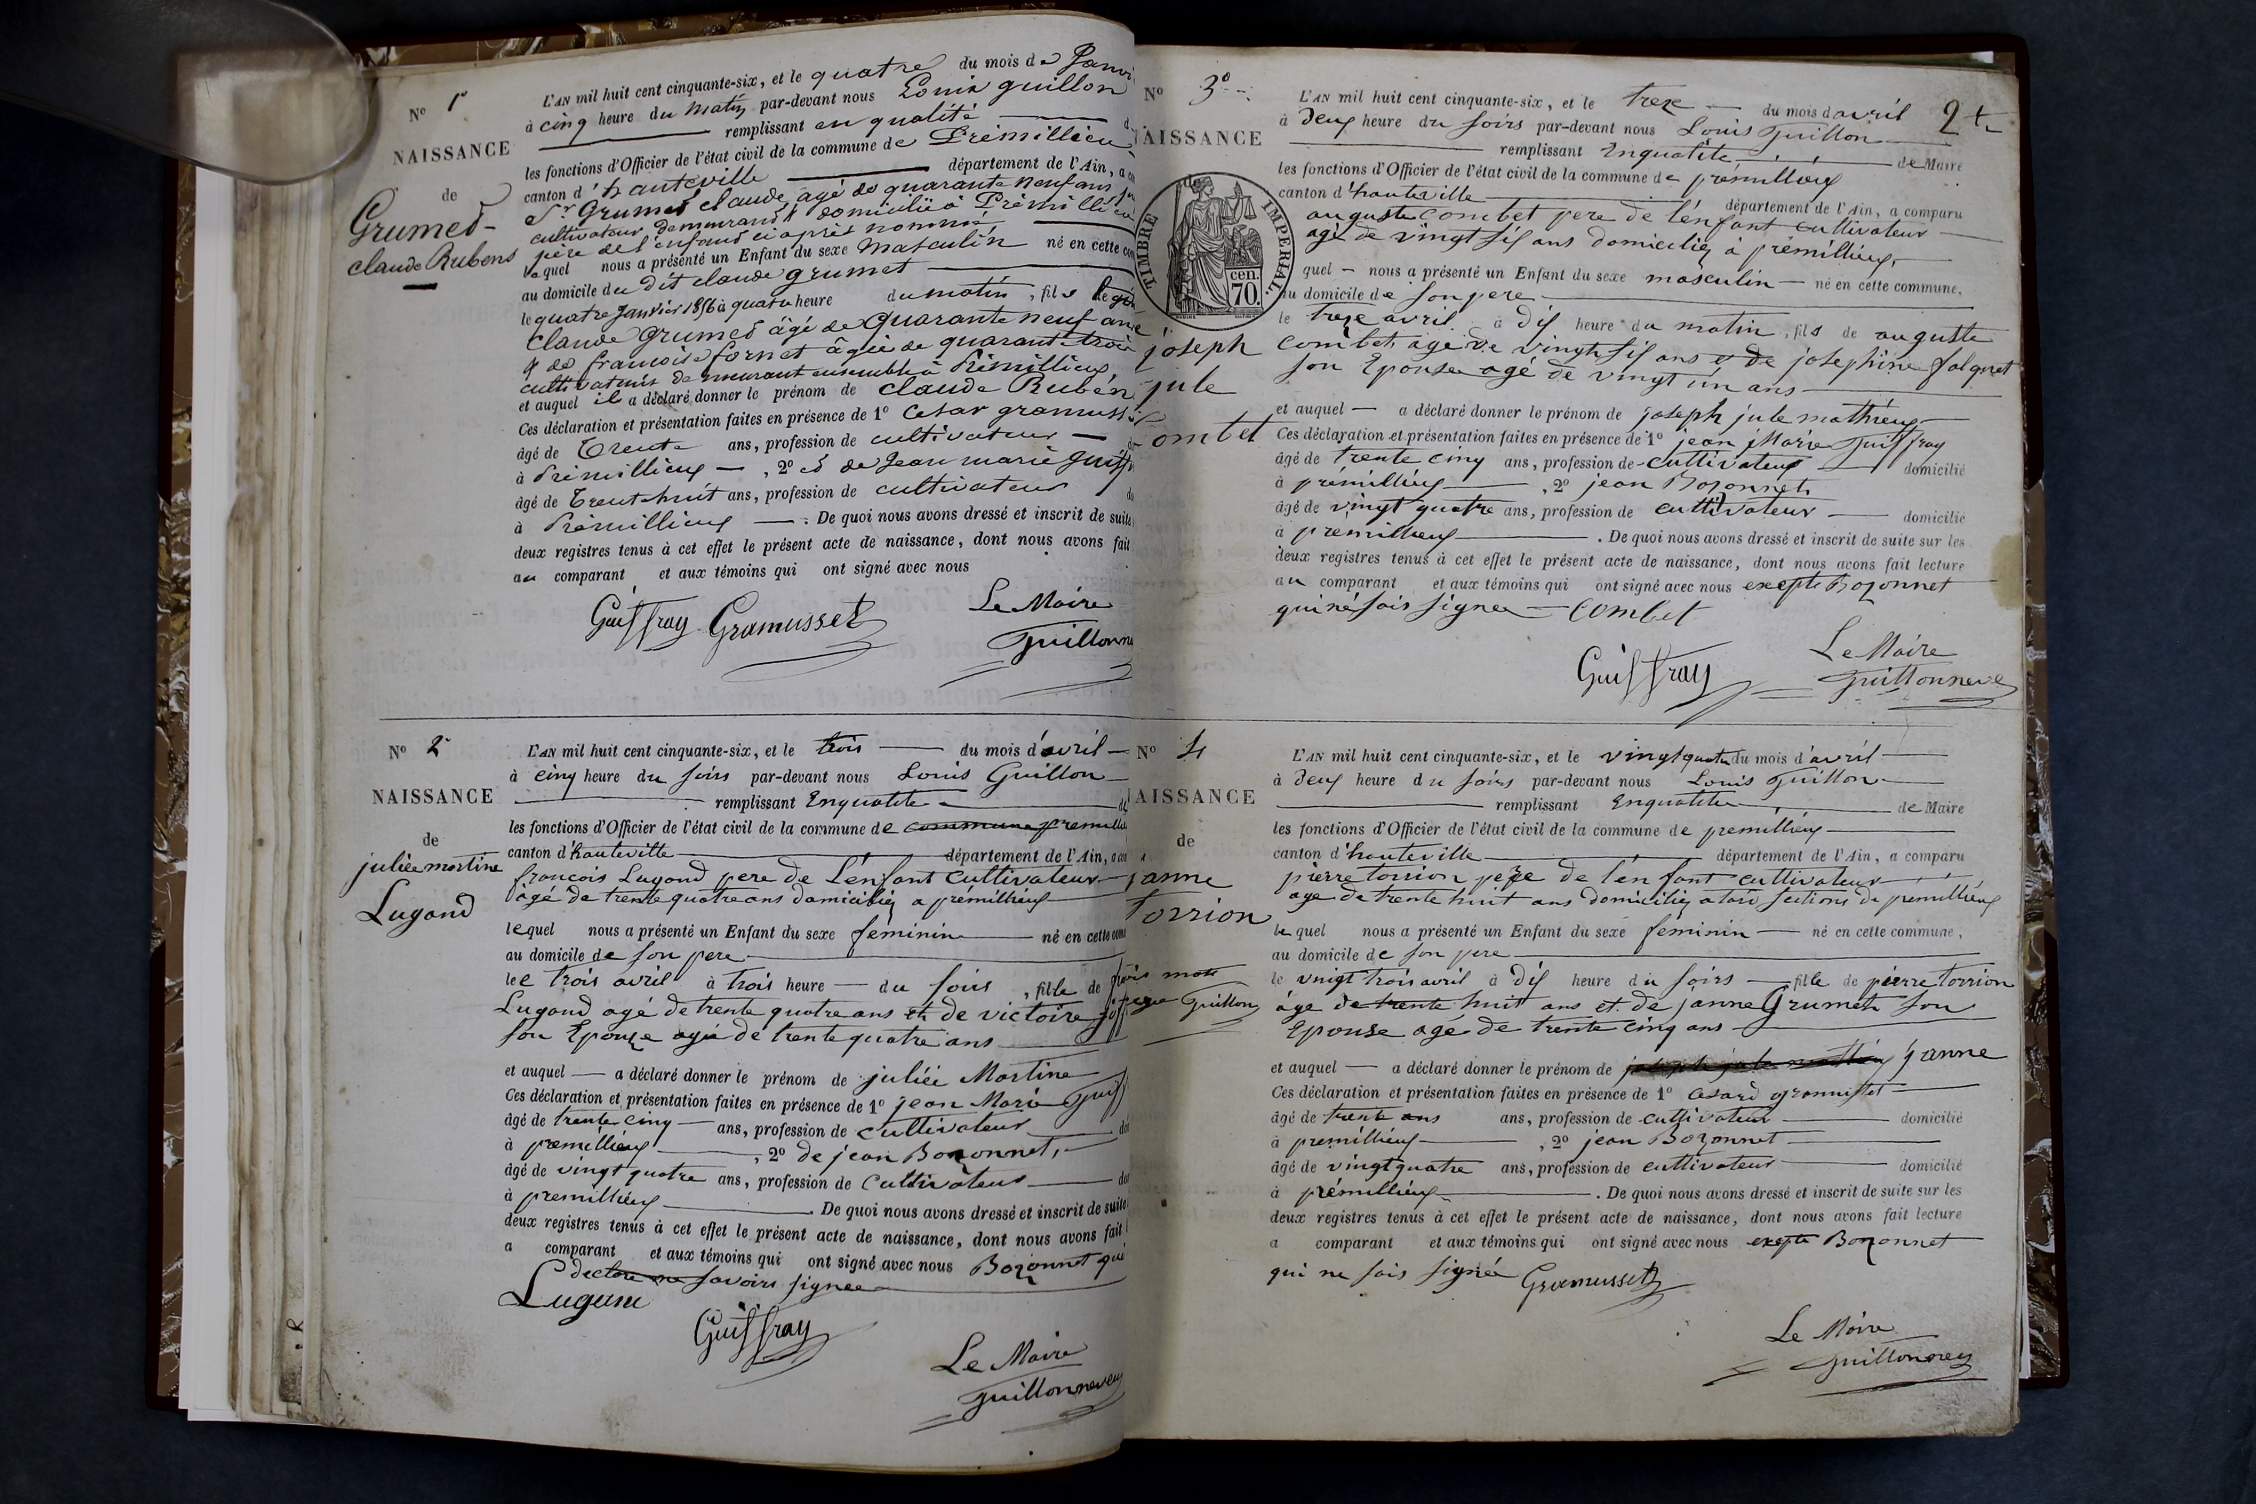 No 1er
NAISSANCE
de
Grumed-
claude Rubens
L'AN mil huit cent cinquante-six, et le quatre du mois de Janvi
à cinq heure du Matin par-devant nous Louis guillon
remplissant en qualité
les fonctions d'Officier de l'état civil de la commune de Prémillieu
canton d'hauteville département de l'Ain, a
Sr Grumed claude, agé de quarante neuf ans
cultivateur demeurand & domicilié à Prémillieu
père de l'enfand ci après nommé
lequel nous a présenté un Enfant du sexe Masculin né en cette com
au domicile du dit claude grumet
le quatre Janvier 1856 à quatre heure du matin, fils de
Claude Grumed âgé de quarante neuf ans
& de francoise fornet âgée de quarante trois
cultivateurs demeurant ensemble à Prémillieux
et auquel il a déclaré donner le prénom de claude Rubén
Ces déclaration et présentation faites en présence de 1o Cesar gramuss
âgé de Trente ans, profession de cultivateur
à Prémillieux, 2o & de Jean marie guiff
âgé de Trente huit ans, profession de cultivateur do
à Prémillieux. De quoi nous avons dressé et inscrit de suite
deux registres tenus à cet effet le présent acte de naissance, dont nous avons fait
au comparant et aux témoins qui ont signé avec nous
Guiffray Gramusset Le Maire
Guillonne
No 2
NAISSANCE
de
juliée martine
Lugand
L'AN mil huit cent cinquante-six, et le trois du mois d'avril
à cinq heure du soirs par-devant nous Louis Guillon
remplissant Enqualite de
les fonctions d'Officier de l'état civil de la commune de commune premillie
canton d'hauteville département de l'Ain, a com
francois Lugand pere de L'enfant Cultivateur
âgé de trente quatre ans domiciliez a prémillieux
lequel nous a présenté un Enfant du sexe feminin né en cette com
au domicile de son pere
le trois avril à trois heure du soirs, fille de frois
Lugand agé de trente quatre ans et de victoire
son Epouze agée de trente quatre ans
et auquel a déclaré donner le prénom de juliée Martine
Ces déclaration et présentation faites en présence de 1o jean Marie Guiff
âgé de trente cinq ans, profession de cultivateur do
à premillieux, 2o de jean Bozonnet,
âgé de vingt quatre ans, profession de Cultivateur do
à premillieux. De quoi nous avons dressé et inscrit de suite
deux registres tenus à cet effet le présent acte de naissance, dont nous avons fait
a comparant et aux témoins qui ont signé avec nous Bozonnet qui
declare ne savoirs signee
Lugand
Guiffray
Le Maire
Guillonneveu
No 3o
NAISSANCE
TIMBRE IMPERIAL.
cen.
70.
joseph
jule
Combet
2
L'AN mil huit cent cinquante-six, et le treze du mois d'avril
à deux heure du soirs par-devant nous Louis Guillon
remplissant Enqualite de Maire
les fonctions d'Officier de l'état civil de la commune de prémillieux
canton d'hauteville département de l'Ain, a comparu
auguste combet pere de l'enfant cultivateur
agé de vingt six ans domiciliez à prémillieux,
quel nous a présenté un Enfant du sexe masculin né en cette commune,
au domicile de son pere
le treze avril à dix heure du matin, fils de auguste
Combet, agé de vingt six ans et de josephine falquet
son Epouse agé de vingt un ans
et auquel a déclaré donner le prénom de joseph jule mathieux
Ces déclaration et présentation faites en présence de 1o jean Marie Guiffray
âgé de trente cinq ans, profession de cultivateur domicilié
à premillieux, 2o jean Bozonnet,
âgé de vingt quatre ans, profession de cultivateur domicilié
à premillieux. De quoi nous avons dressé et inscrit de suite sur les
deux registres tenus à cet effet le présent acte de naissance, dont nous avons fait lecture
au comparant et aux témoins qui ont signé avec nous excepte Bozonnet
qui ne sais signee Combet
Guiffray
Le Maire
Guillonneveu
No 4
NAISSANCE
de
janne
Torrion
L'AN mil huit cent cinquante-six, et le vingt quatre du mois d'avril
à deux heure du soirs par-devant nous Louis Guillon
remplissant Enqualite de Maire
les fonctions d'Officier de l'état civil de la commune de premillieux
canton d'hauteville département de l'Ain, a comparu
pierre torrion pere de l'enfant cultivateur
age de trente huit ans domiciliez a sections de premillieux
lequel nous a présenté un Enfant du sexe feminin né en cette commune,
au domicile de son pere
le vingt trois avril à dix heure du soirs fille de pierre Torrion
âge de trente huit ans et de janne Grumet son
Epouse agé de trente cinq ans
et auquel a déclaré donner le prénom de joseph jule mathieux janne
Ces déclaration et présentation faites en présence de 1o
âgé de trente ans ans, profession de cultivateur domicilié
à premillieux, 2o jean Bozonnet
âgé de vingt quatre ans, profession de cultivateur domicilié
à prémillieux. De quoi nous avons dressé et inscrit de suite sur les
deux registres tenus à cet effet le présent acte de naissance, dont nous avons fait lecture
a comparant et aux témoins qui ont signé avec nous exepte Bozonnet
qui ne sais signée Gramusset
Le Maire
Guillonneveu